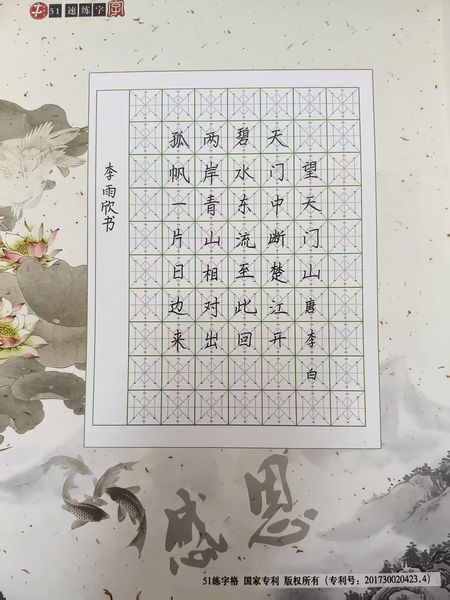 51速练字
望天门山 唐 李白
天门中断楚江开
碧水东流至此回
两岸青山相对出
孤帆一片日边来
李雨欣书
感恩
51练字格 国家专利 版权所有（专利号：201730020423.4）